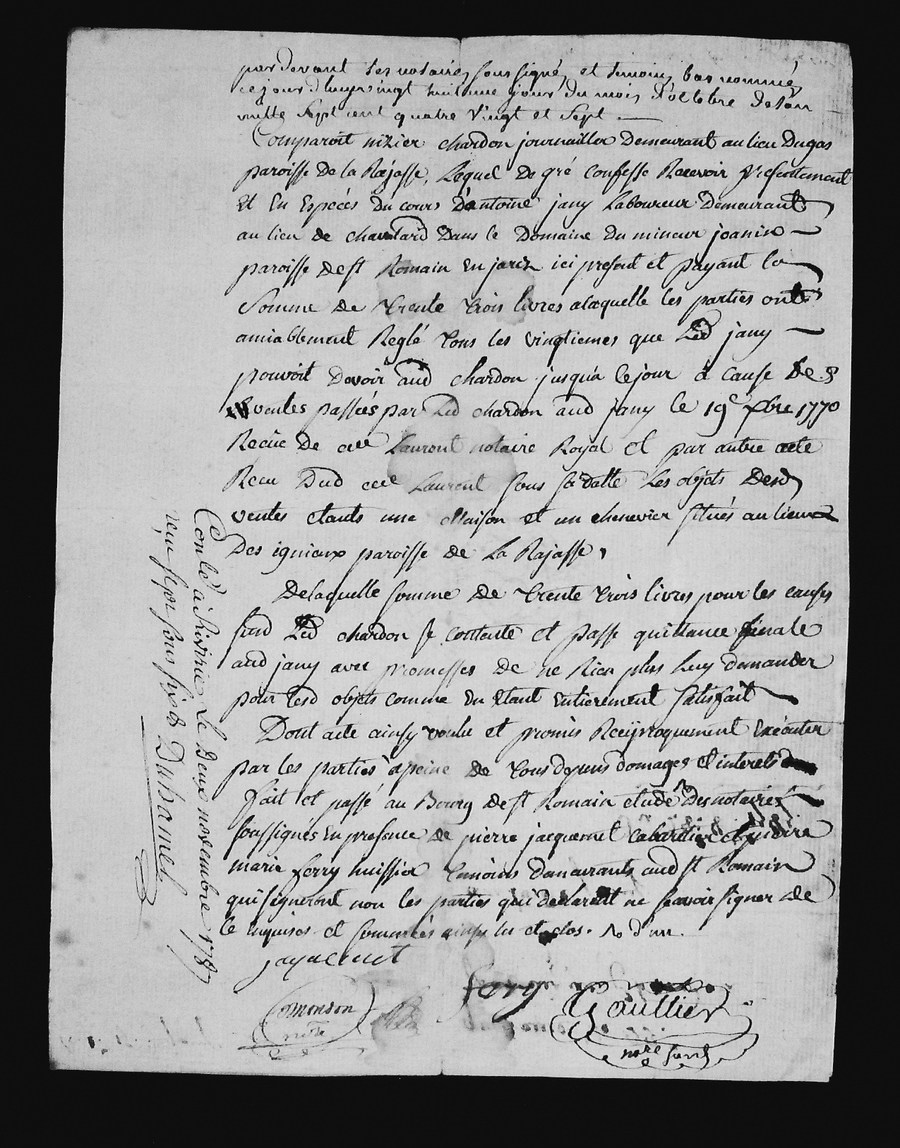 pardevant les notaires soussignés et temoins bas nommés
cejourd'huy vingt huitieme jour du mois d'octobre de l'an
mille sept cent quatre vingt et sept.
Comparoit nizier chardon journaillier Demeurant au lieu Dugas
paroisse de la Rajasse, Lequel de gré confesse Recevoir presentement
et En Especes Du cours D'antoine jany Laboureur Demeurant
au lieu de chavatard Dans le Domaine Du mineur joanin
paroisse de st Romain en jarez ici present et payant la
somme de trente trois livres alaquelle les parties ont
amiablement Reglé tous les vingtiemes que Led jany
pouvoit Devoir aud chardon jusqu'a cejour a cause De
ventes passées par Led chardon aud jany le 19e xbre 1770
Recüe de me Laurent notaire Royal et par autre acte
Recu Dud me Laurent sous sa datte Les objets Desd
ventes etants une Maison et un chenevier situés au lieu
Des igniaux paroisse de La Rajasse,
Delaquelle somme de trente trois livres pour les causes
susd Led chardon se contente et passe quittance finale
aud jany avec promesses de ne Rien plus Luy demander
pour lesd objets comme En Etant Entierement satisfait
Dont acte ainsy voulu et promis Reciproquement Exécuter
par les parties apeine de tous depens domages et interets
fait et passé au Bourg de st Romain etude Des notaires
soussignés En presence de pierre jacquemet cabartier et pierre
marie ferry huissier temoins demeurants aud st Romain
qui signeront non les parties qui declarent ne scavoir signer de
ce Enquises et sommées ainsy lu et clos.
jaquemet
ferry
Gaultier
nore
Comondon
nore
Conlé à Rivirie Le Deux novembre 1787
reçu
Duhamel